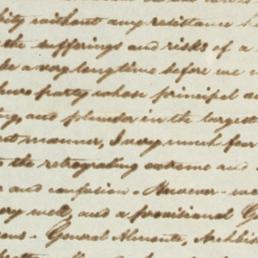 bity without any resistance
the sufferings and risks of a
be a very long time before we
party whose principal
and plunder in the largest
manner, I very much fear
the retrograting extreme and
and confusion. However
very well, and a provisional
General Almonte, Archbis